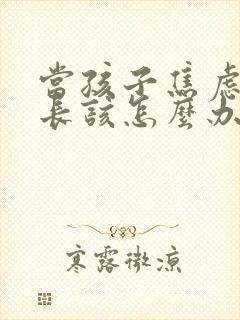 當孩子焦慮
長該怎麼办
寒露微凉